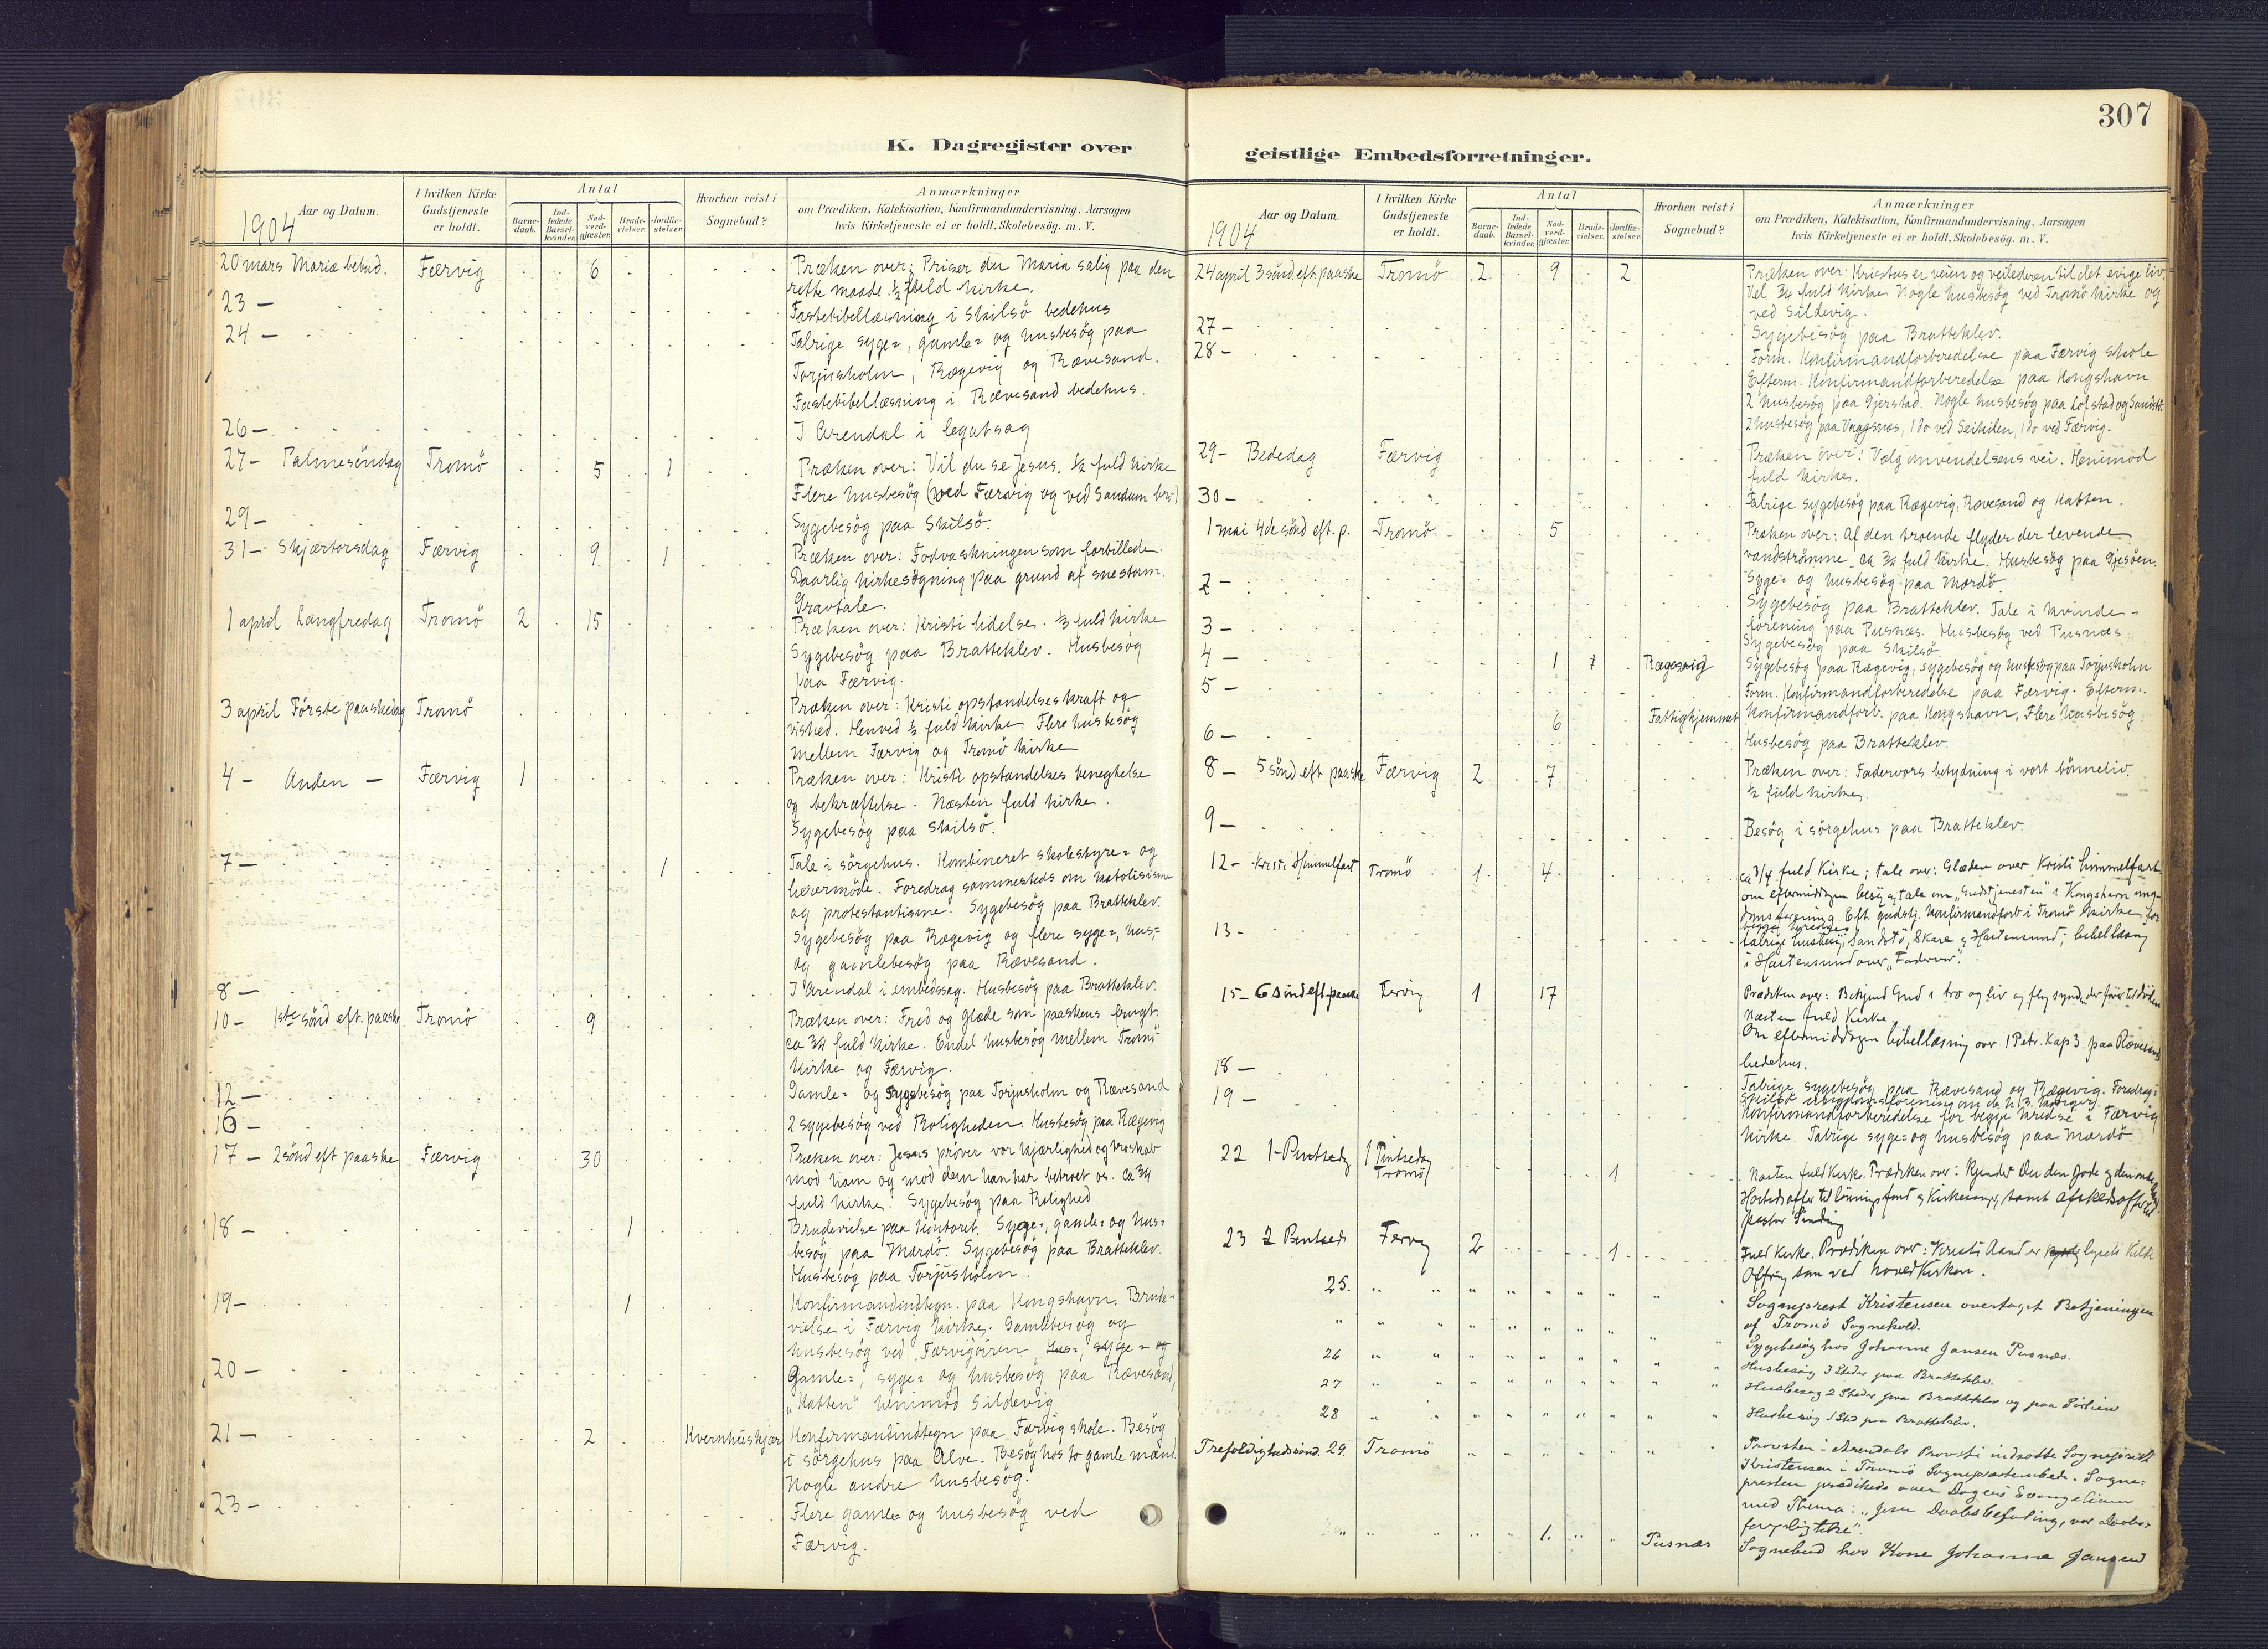 307
K. Dagregister over
geistlige Embedsforretninger.
Aar og Datum.
1904
I hvilken Kirke
Gudstjeneste
er holdt.
Antal
Barne-
daab.
Ind-
ledede
Barsel-
kvinder.
Nad-
verd-
gjæster.
Brude-
vielser.
Jordfæ-
stelser.
Hvorhen reist i
Sognebud?
Anmærkninger
om Prædiken, Katekisation, Konfirmandundervisning. Aarsagen
hvis Kirketjeneste ei er holdt, Skolebesøg. m. V.
20 mars Mariæ bebud. Færvig 6 Præken over: Priser du Maria salig paa den
rette maade. ½ fuld kirke.
23 — Fastebibellæsning i Skilsö bedehus
24 — Talrige syge=, gamle= og husbesøg paa
Torjusholm, Rægevig og Rævesand.
Fastebibellæsning i Rævesand bedehus.
26 — I Arendal i legatsag
27 - Palmesöndag Tromö 5 1 Præken over: Vil du se Jesus. ½ fuld kirke
Flere husbesøg (ved Færvig og ved Sandum bro)
29 — Sygebesøg paa Skilsö.
31 - Skjærtorsdag Færvig 9 1 Præken over: Fodvaskningen som forbillede.
Daarlig kirkesøgning paa grund af snestorm.
Gravtale.
1 april Langfredag Tromö 2 15 Præken over: Kristi lidelse. ⅓ fuld kirke
Sygebesøg paa Bratteklev. Husbesøg
paa Færvig.
3 april Förste paaskedag Tromö Præken over: Kristi opstandelses kraft og
vished. Henved ½ fuld kirke. Flere husbesøg
mellem Færvig og Tromö kirke
4 - Anden — Færvig 1 Præken over: Kristi opstandelses benegtelse
og bekræftelse. Næsten fuld kirke.
Sygebesøg paa Skilsö.
7 — 1 Tale i sörgehus. Kombineret skolestyre= og
lærermöde. Foredrag sammesteds om katolicisme
og protestantisme. Sygebesøg paa Bratteklev.
Sygebesøg paa Rægevig og flere syge=, hus=
og gamlebesøg paa Rævesand.
8 — I Arendal i embedssag. Husbesøg paa Bratteklev.
10 - 1ste sönd eft. paaske Tromö 9 Præken over: Fred og glæde som paaskens frugt.
ca ¾ fuld kirke. Endel husbesøg mellem Tromö
kirke og Færvig.
12 — Gamle= og Sygebesøg paa Torjusholm og Rævesand
16 — 2 sygebesøg ved Roligheden. Husbesøg paa Rægevig
17 - 2 sönd eft paaske Færvig 30 Præken over: Jesus pröver vor kjærlighed og troskab
mod ham og mod dem han har betroet os. ca ¾
fuld kirke. Sygebesøg paa Rolighed
18 — 1 Brudevielse paa kontoret. Syge=, gamle= og hus=
besøg paa Mærdö. Sygebesøg paa Bratteklev.
Husbesøg paa Torjusholm.
19 — 1 Konfirmandindtegn. paa Kongshavn. Brude=
vielse i Færvig kirke. Gamlebesøg og
husbesøg ved Færvigöiren
20 — Gamle=, syge= og husbesøg paa Rævesand,
"Katten" henimod Sildevig
21 — 2 Kvernhuskjær Konfirmandindtegn paa Færvig skole. Besøg
i sörgehus paa Alve. Besøg hos to gamle mænd.
Nogle andre husbesøg.
23 — Flere gamle og husbesøg ved
Færvig.
Aar og Datum.
1904
I hvilken Kirke
Gudstjeneste
er holdt.
Antal
Barne-
daab.
Ind-
ledede
Barsel-
kvinder.
Nad-
verd-
gjæster.
Brude-
vielser.
Jordfæ-
stelser.
Hvorhen reist i
Sognebud?
Anmærkninger
om Prædiken, Katekisation, Konfirmandundervisning. Aarsagen
hvis Kirketjeneste ei er holdt, Skolebesøg. m. V.
24 april 3 sönd eft paaske Tromö 2 9 2 Præken over: Kristus er veien og veilederen til det evige liv.
Vel ¾ fuld kirke. Nogle husbesøg ved Tromö kirke og
ved Sildevig.
27 — Sygebesøg paa Bratteklev.
28 — Form. Konfirmandforberedelse paa Færvig skole
Efterm. Konfirmandforberedelse paa Kongshavn
2 husbesøg paa Gjerstad. Nogle husbesøg paa Lofstad og
2 husbesøg paa Vragsnes, 1 do ved Seikilen, 1 do ved Færvig.
29 - Bededag Færvig Præken over: Vælg omvendelsens vei. Henimod
fuld kirke.
30 — Talrige sygebesøg paa Rægevig, Rævesand og Katten.
1 mai 4de sönd eft. p. Tromö 5 Præken over: Af den troende flyder der levende
vandströmme. ca ¾ fuld kirke. Husbesøg paa Gjesöen.
Syge= og husbesøg paa Mærdö
2 — Sygebesøg paa Bratteklev. Tale i kvinde-
forening paa Pusnæs. Husbesøg ved Pusnæs
3 — Sygebesøg paa Skilsö
4 — 1 Rægevig Sygebesøg paa Rægevig, sygebesøg og husbesøg paa Torjusholm
5 — 6 Fattighjemmet Form. Konfirmandforberedelse paa Færvig. Efterm.
Konfirmandforb. paa Kongshavn. Flere husbesøg
6 — Husbesøg paa Bratteklev.
8 — 5 sönd eft paaske Færvig 2 7 Præken over: Fadervors betydning i vort bönneliv.
½ fuld kirke.
9 — Besøg i sörgehus paa Bratteklev.
12 - Kristi Himmelfart Tromö 1 4 ca 3/4 fuld Kirke; tale over: Glæden over Kristi himmelfart
om eftermiddagen besøg og tale om "Gudstjenesten" i Kongshavn ung-
domsforening Eft. gudstj. konfirmandforb i Tromö kirke for
begge kredse
13 - talrige husbesøg Sandstö, Skare og Hastensund; bibellæsning
i Hastensund over "Fadervor".
15 - 6 sönd eft paaske Færvig 1 17 Prædiken over: Bekjend Gud i tro og liv og fly synd, der förer til döden
Næsten fuld Kirke
Om eftermiddagen bibellæsning over 1 Petr. Kap 3. paa Rævesand
bedehus.
18 — Talrige sygebesøg paa Rævesand og Rægevig. Foredrag i
Skilsö ungdomsforening
19 — Konfirmandforberedelse for begge kredse i Færvig
kirke. Talrige syge= og husbesøg paa Mærdö
22 1-Pintsedag 1 Pintsedag
Tromö 1 Næsten fuld Kirke. Prædiken over: Kjender Du den gode
Höitidsoffer til lönningsfond og Kirkesanger, samt Afskedsoffer til
pastor Sinding
23 2 Pintsed. Færvig 2 1 Fuld Kirke. Prædiken over: Kristi Aand er lysets Kilde
Offring som ved hovedkirken.
25. Sogneprest Kristensen overtaget Betjeningen
af Tromö Sognekald.
26 Sygebesøg hos Johanne Jansen Pusnæs.
Husbesøg 3 Steder paa Bratteklev.
27 Husbesøg 2 Steder paa Bratteklev og paa
28 Husbesøg 1 Sted paa Bratteklev.
Trefoldighedssönd. 29. Tromö Provsten i Arendals Provsti indsatte Sogneprest
Kristensen i Tromö Sogneprestembede. Sogne-
presten prædikede over Dagens Evangelium
med Thema: "Jesu Daabs befaling, vor daabs-
forpligtelse".
1. Pusnæs Sognebud hos Kone Johanne Jansen